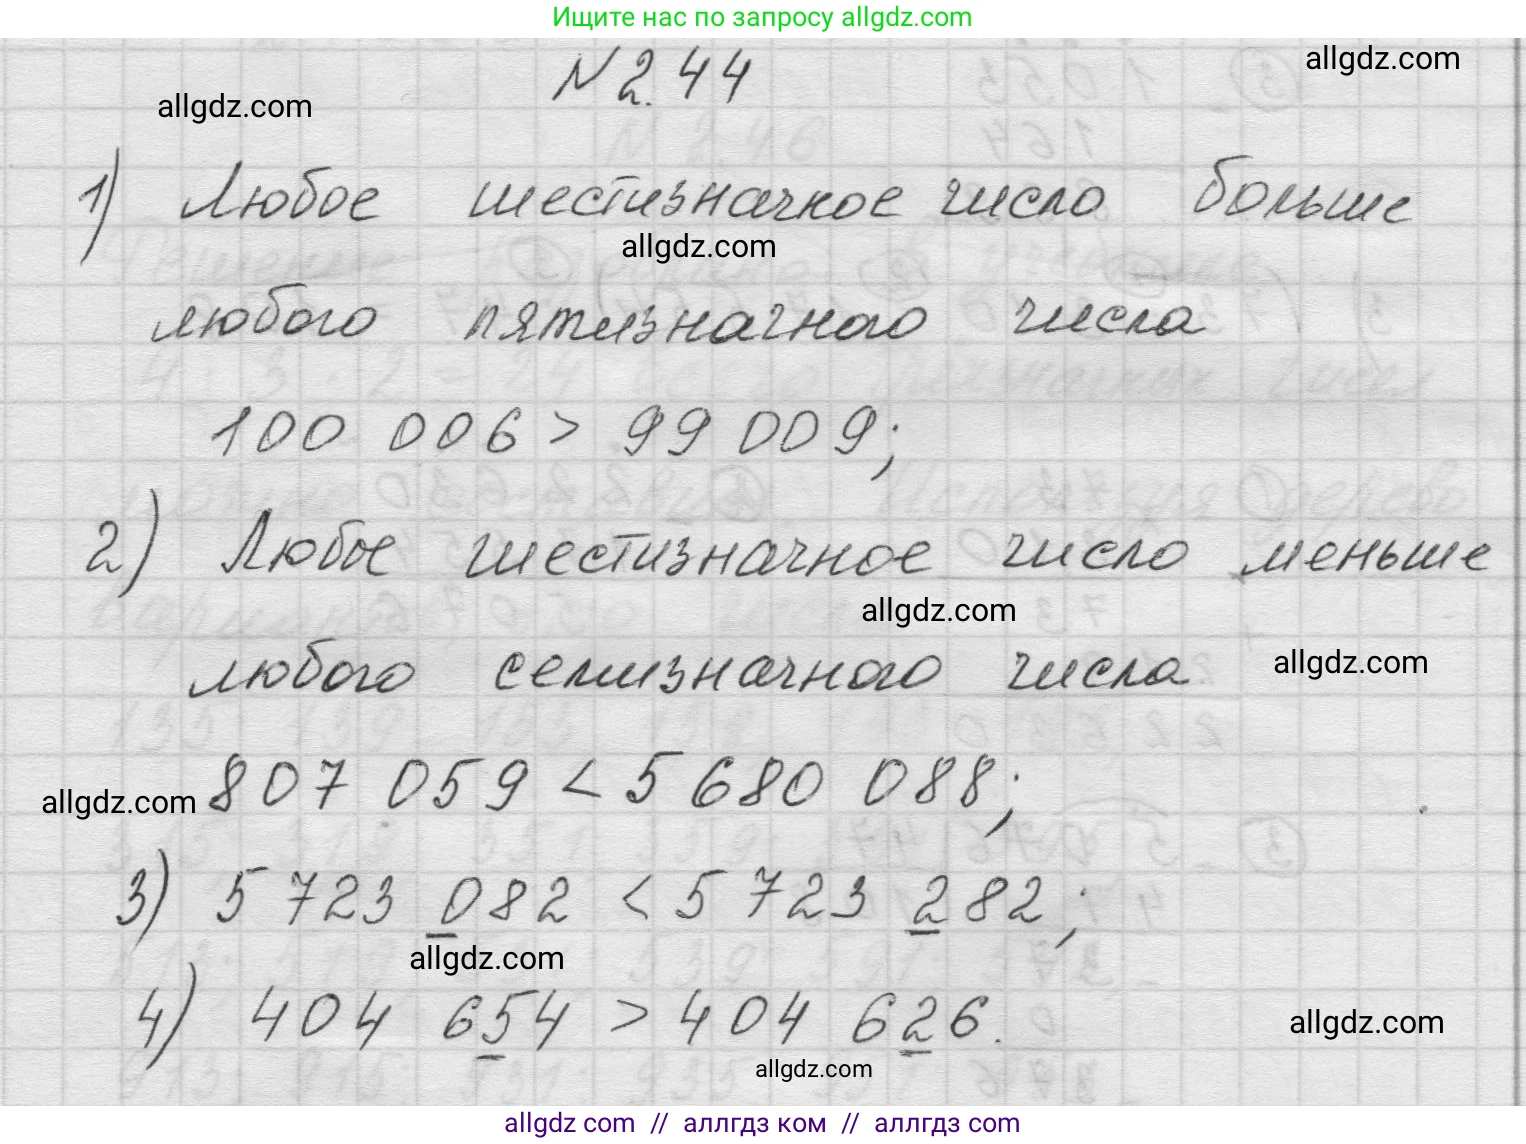 Ищите нас по запросу allgdz.com
allgdz.com
N 2.44
allgdz.com
1) Любое шестизначное число больше
allgdz.com
любого пятизначного числа
100 006 > 99 009;
2) Любое шестизначное число меньше
allgdz.com
любого семизначного числа
allgdz.com
allgdz.com
807 059 < 5 680 088;
3) 5 723 082 < 5 723 282;
allgdz.com
4) 404 654 > 404 626.
allgdz.com
allgdz.com
allgdz com // аллгдз ком // аллгдз com